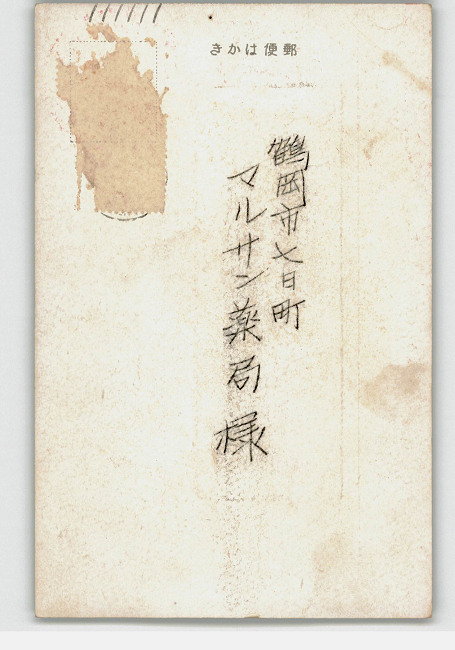 きかは便郵
鶴岡市七日町
マルサン薬局様